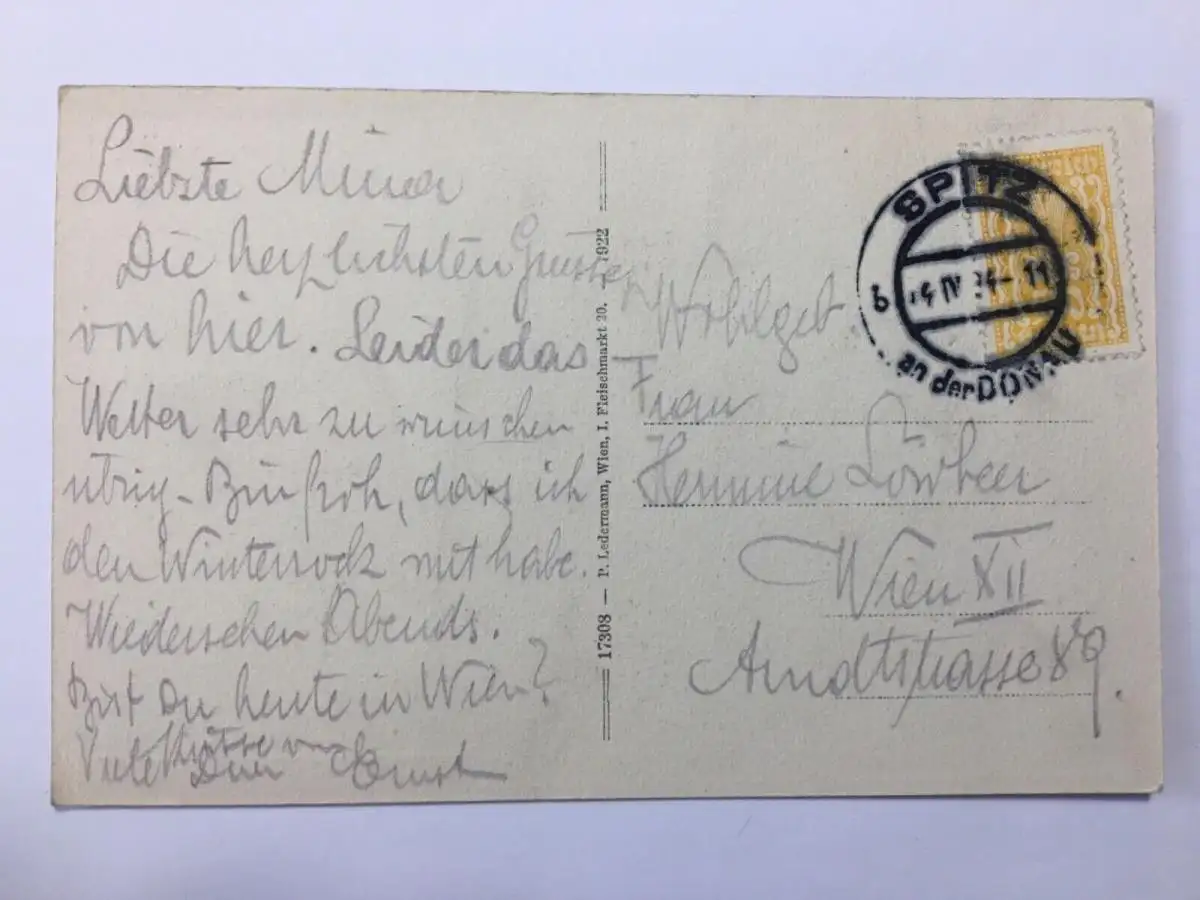 Liebste Minna
Die herzlichsten Grüsse
von hier. Leider das
Wetter sehr zu wünschen
übrig - Bin froh, dass ich
den Winterrock mit habe.
Wiedersehen Abends.
Bist Du heute in Wien?
Viele Küsse von
Dein Ernst
17308 — P. Ledermann, Wien, I. Fleischmarkt 20. — 1922
SPITZ
an der DONAU
b
IV
11
Wohlgeb
Frau
Hermine Löwbeer
Wien XII
Arndtstrasse 89.